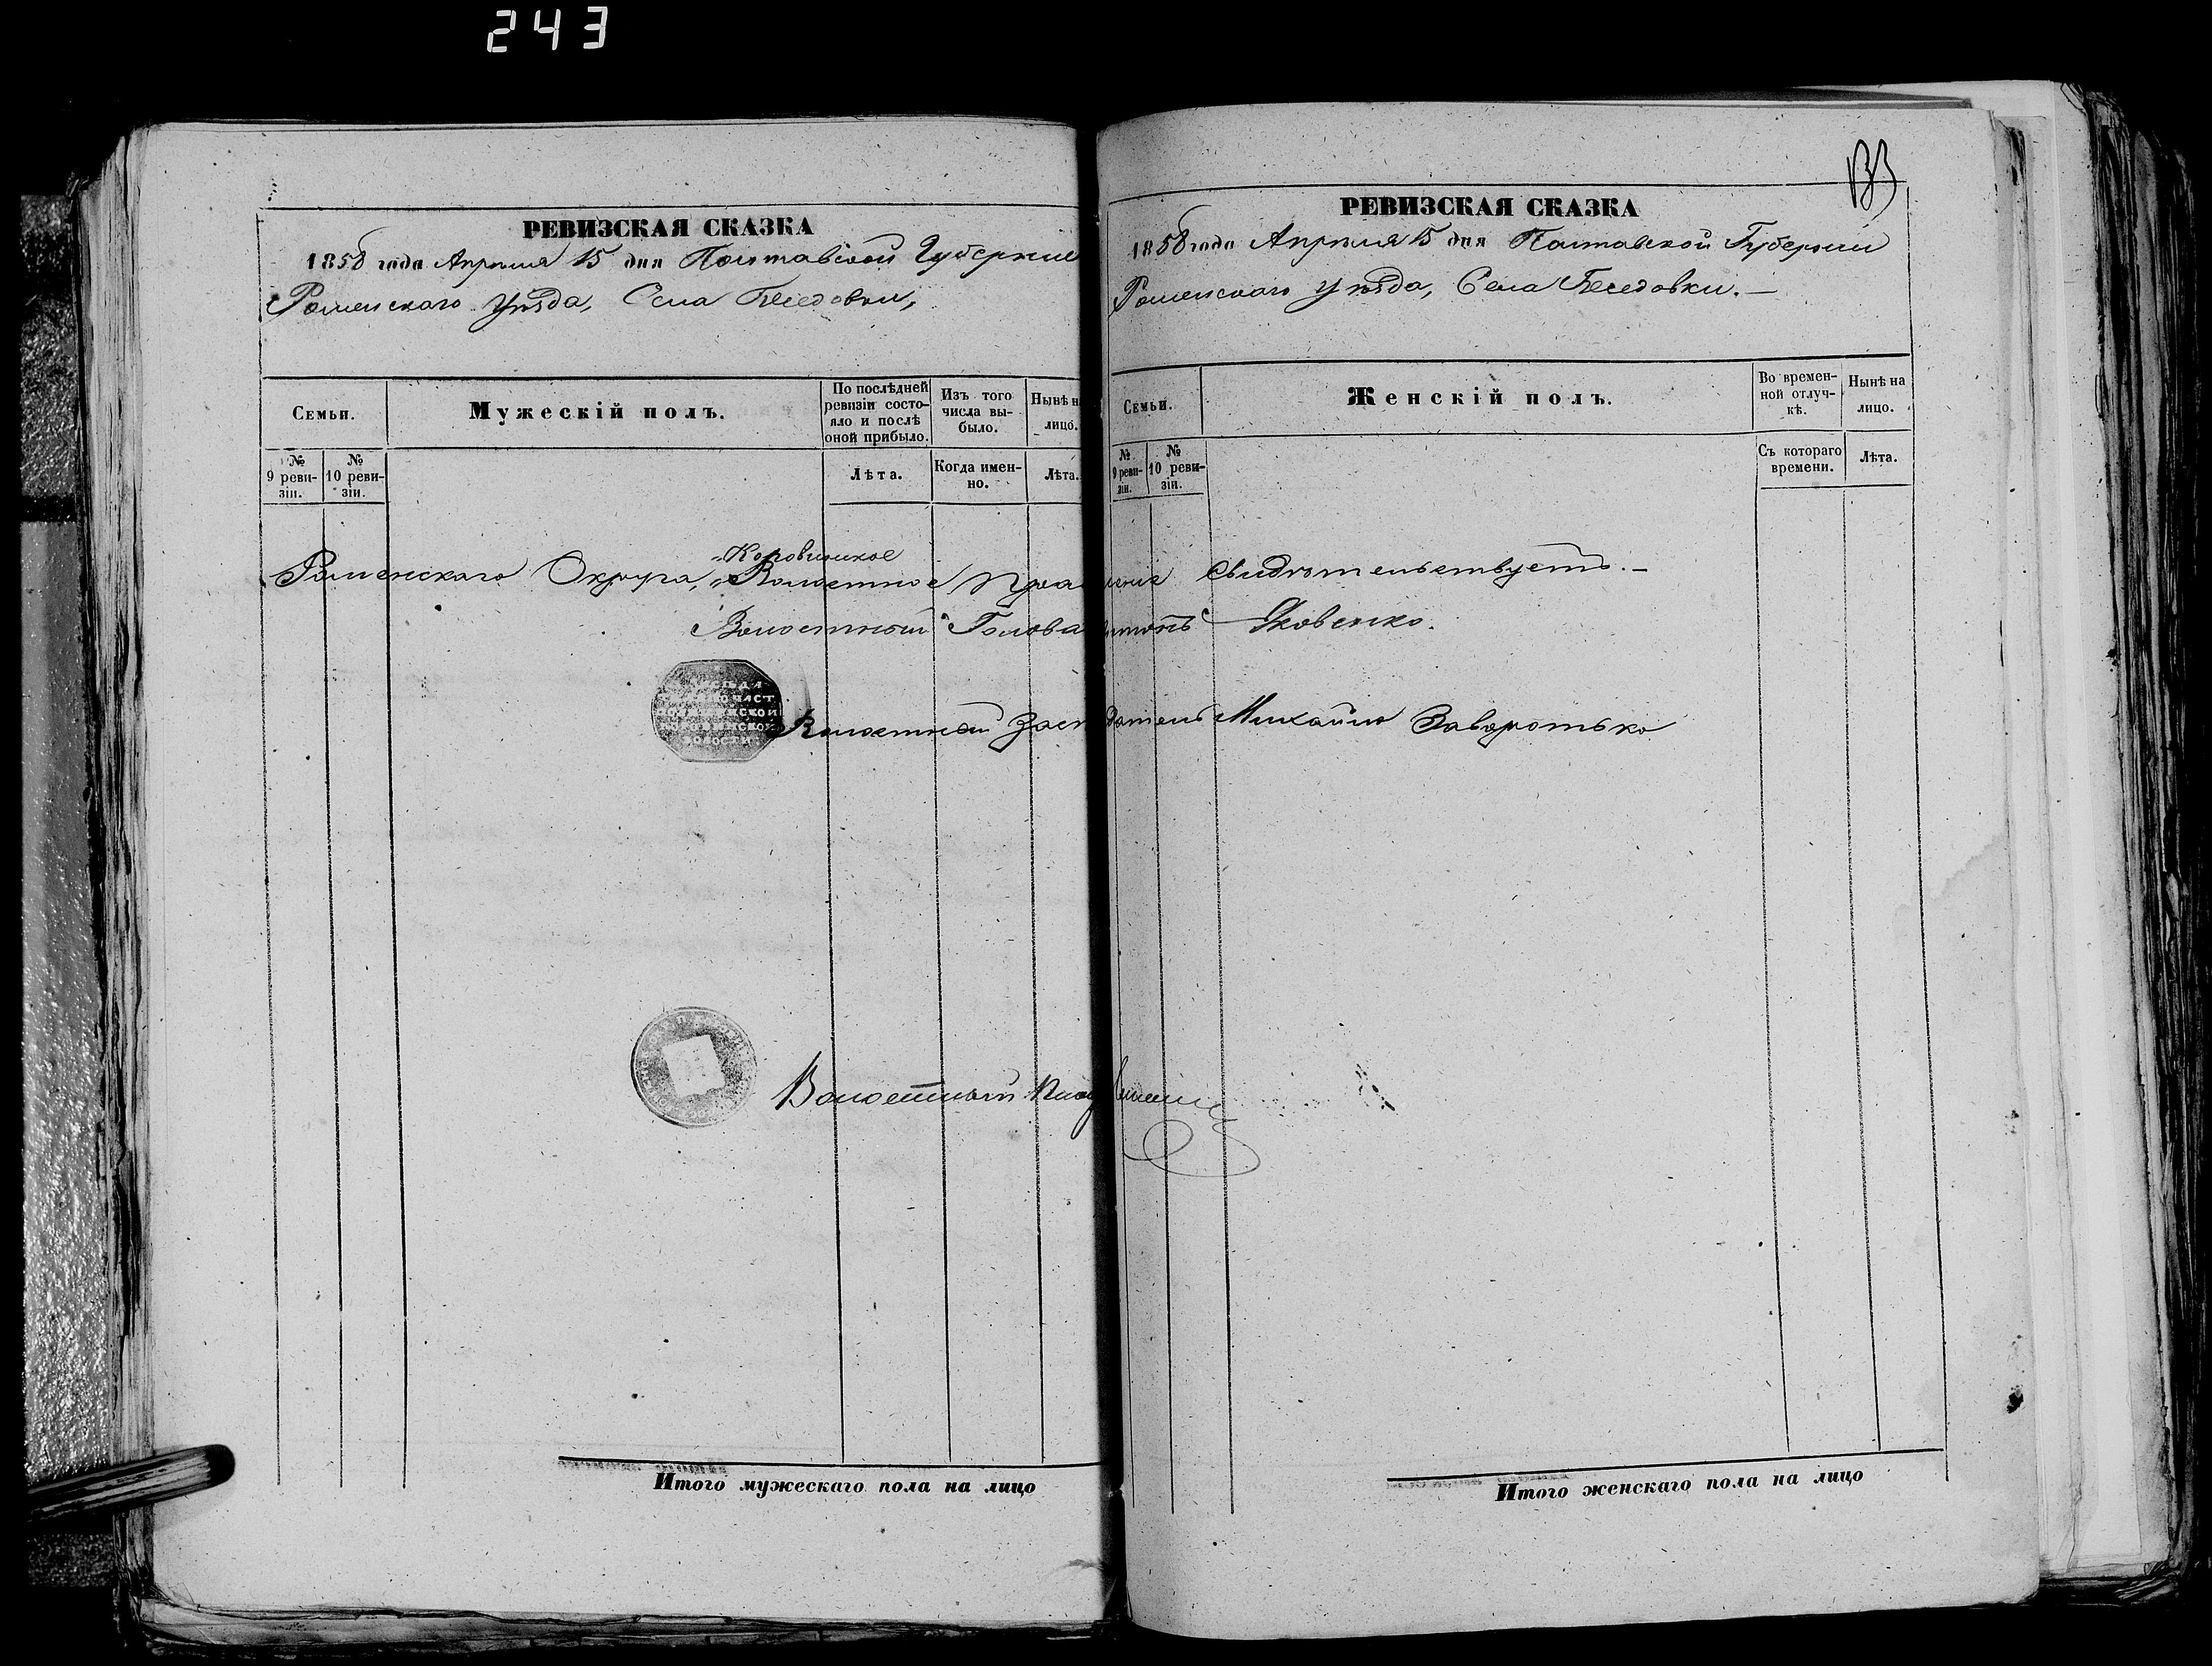 243
РЕВИЗСКАЯ СКАЗКА
1858 года Апрѣля 15 дня Полтавской Губерніи
Роменскаго уѣзда, Села Беседовки,
Семьи.
Мужескій полъ.
По послѣдней ревизіи состояло и послѣ оной прибыло.
Изъ того числа выбыло.
Нынѣ н
лицо.
№ 9 ревизіи.
№ 10 ревизіи.
Лѣта.
Когда именно.
Лѣта.
133
РЕВИЗСКАЯ СКАЗКА
1858 года Апрѣля 15 дня Полтавской Губерніи
Роменскаго уѣзда, Села Беседовки. —
Семьи.
Женскій полъ.
Во временной отлучкѣ.
Нынѣ на лицо.
№ 9 ревизіи.
№ 10 ревизіи.
Съ котораго времени.
Лѣта.
Коровинское
Роменскаго Округа, Волостное Правленіе свидѣтельствуетъ. —
Волостный Голова Яковенко.
Волостный Засѣдатель Михайло Заворотько
ВОЛОСТИ
Волостный Писарь
Итого мужескаго пола на лицо
Итого женскаго пола на лицо